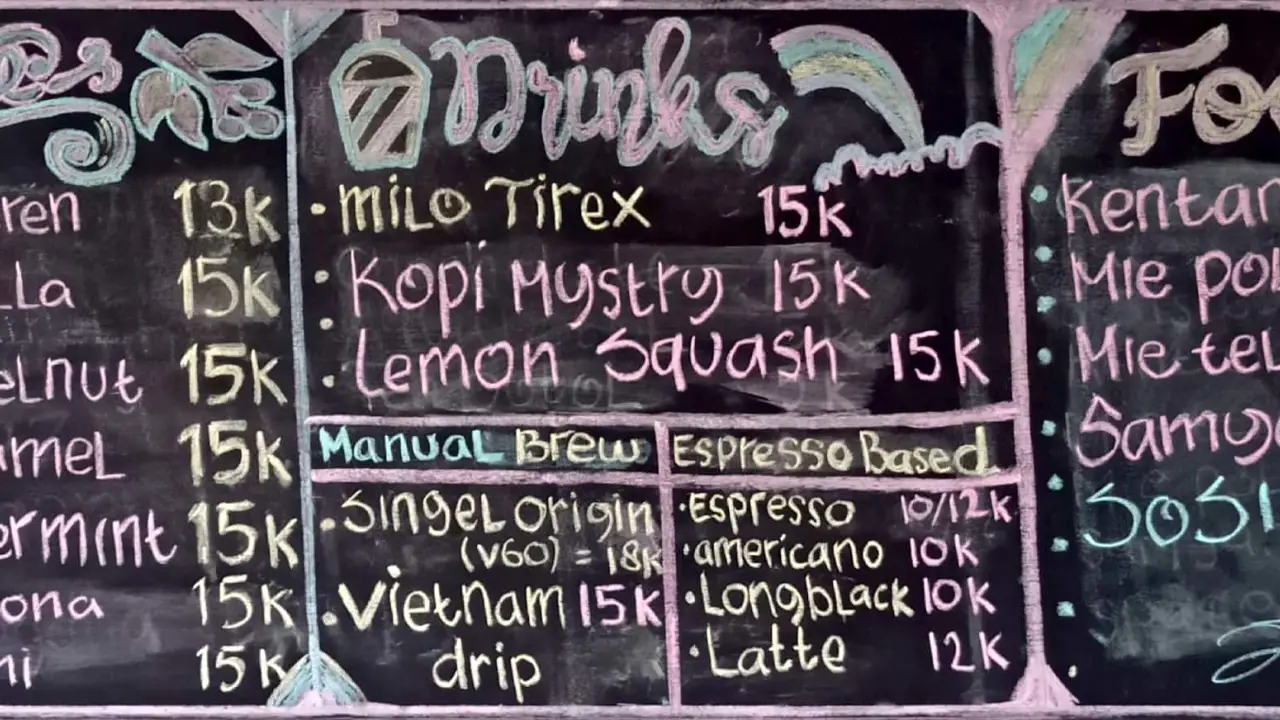 Drinks
ren 13k
15k
elnut 15k
amel 15k
ermint 15k
ona 15k
15k
• Milo Tirex 15k
• Kopi Mystry 15k
• Lemon Squash 15k
Manual Brew
• Singel Origin
(V60) = 18k
• Vietnam 15k
drip
Espresso Based
• Espresso 10/12k
• americano 10k
• Longblack 10k
• Latte 12k
Fo
Kentan
Mie
Mie tel
Samy
SOSI